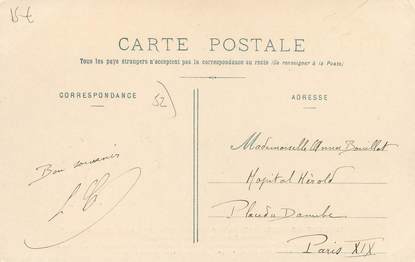 15€
CARTE POSTALE
Tous les pays étrangers n'acceptent pas la correspondance au recto (Se renseigner à la Poste)
CORRESPONDANCE
52
ADRESSE
Mademoiselle Anna Bouillot
Hopital Hérold
Place du Danube
Paris XIX
Bon souvenir